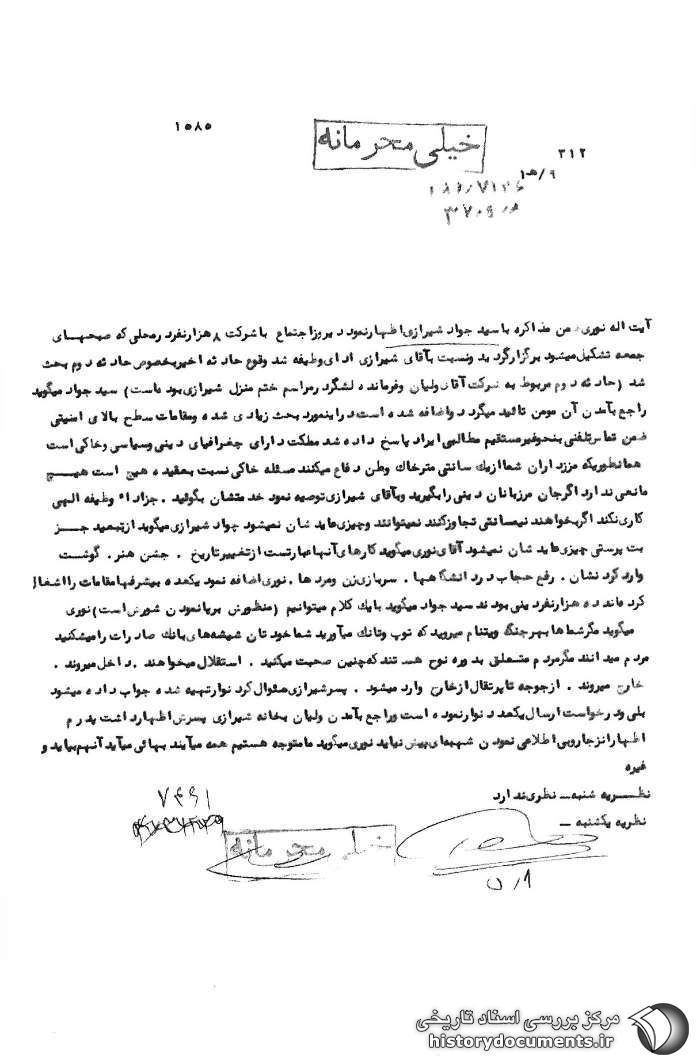 ۱۵۸۵
خیلی محرمانه
۳۱۲
۹/هـ۱
آیت اله نوری ضمن مذاکره با سید جواد شیرازی اظهار نمود دیروز اجتماع با شرکت ۸ هزار نفر در محلی که صبحهای
جمعه تشکیل میشود برگزار گردید ونسبت بآقای شیرازی ادای وظیفه شد وقوع حادثه اخیر بخصوص حادثه دوم بحث
شد (حادثه دوم مربوط به شرکت آقای ولیان وفرمانده لشگر در مراسم ختم منزل شیرازی بوده است) سید جواد میگوید
راجع بآمدن آن مومن تائید میگردد واضافه شده است در اینمورد بحث زیادی شده ومقامات سطح بالای امنیتی
ضمن تماس تلفنی بنحو غیر مستقیم مطالبی ایراد پاسخ داده شد مملکت دارای جغرافیای دینی وسیاسی وخاکی است
همانطوریکه مرزداران شما از یک سانتی متر خاک وطن دفاع میکنند مسئله خاکی نسبت بعقیده هیچ است هیـــچ
مانعی ندارد اگر جان مرزبانان دینی را بگیرید وبآقای شیرازی توصیه نمود خدمتشان بگوئید . جز اداء وظیفه الهی
کاری نکند اگر بخواهند نیم سانتی تجاوز کنند نمیتوانند وچیزی عایدشان نمیشود جواد شیرازی میگوید از تبعید جـــز
بت پرستی چیزی عایدشان نمیشود آقای نوری میگوید کارهای آنها عبارتست از تغییر تاریخ . جشن هنر. گوشت
وارد کردنشان . رفع حجاب در دانشگاهها . سربازی زن ومردها . نوری اضافه نمود یکعده بیشرفها مقامات را اشغال
کرده‌اند ده هزار نفر دینی بودند سید جواد میگوید با یک کلام میتوانیم (منظورش برپا نمودن شورش است) نوری
میگوید مگر شما بهر جنگ ویتنام میروید که توپ وتانک میآورید شما خودتان شیشه‌های بانک صادرات را میشکنید
مردم میدانند مگر مردم متعلق بدوره نوح هستند که چنین صحبت میکنید . استقلال میخواهند . داخل میروند .
خارج میروند . از جوجه تا پرتقال از خارج وارد میشود . پسر شیرازی سئوال کرد نوار تهیه شده جواب داده میشود
بلی و درخواست ارسال یکعدد نوار نموده است وراجع بآمدن ولیان بخانه شیرازی پسرش اظهار داشت پدرم
اظهار انزجار وبی اطلاعی نمودن شبهه‌ای پیش نیاید نوری میگوید ما متوجه هستیم همه میآیند بهائی میآید آنهم بیاید و
غیره
نظـــریه شنبه ــ نظری ندارد
نظریه یکشنبه ــ
۷۴۹۱
خیلی محرمانه
مرکز بررسی اسناد تاریخی
historydocuments.ir